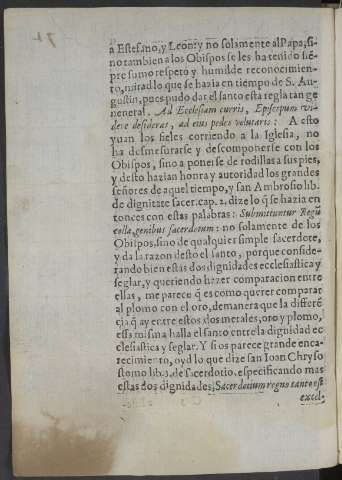 a Estefano, y Leon: y no solamente al Papa, si
no tambien a los Obispos se les ha tenido siē-
pre sumo respeto y humilde reconocimien-
to, mirad lo que se hazia en tiempo de S. Au
gustin, pues pudo dar el santo esta regla tan ge
neneral. Ad Ecclesiam curris, Episcopum vi-
dere desideras, ad eius pedes volutaris: A esto
yuan los fieles corriendo a la Iglesia, no
ha desmesurarse y descomponerse con los
Obispos, sino a ponerse de rodillas a sus pies,
y desto hazian honra y autoridad los grandes
señores de aquel tiempo, y san Ambrosio lib.
de dignitate sacer. cap. 2. dize lo q̃ se hazia en
tonces con estas palabras: Submittuntur Regũ
colla, genibus sacerdotum: no solamente de los
Obispos, sino de qualquier simple sacerdote,
y da la razon desto el santo, porque conside-
rando bien estas dos dignidades ecclesiastica y
seglar, y queriendo hazer comparacion entre
ellas, me parece q̃ es como querer comparar
al plomo con el oro, demanera que la differē
cia q̃ ay entre estos dos metales, oro y plomo,
essa misma halla el santo entre la dignidad ec
clesiastica y seglar. Y si os parece grande enca-
recimiento, oyd lo que dize san Ioan Chryso
stomo lib. 3. de sacerdotio, especificando mas
estas dos dignidades; Sacerdotium regno tanto est
excel-